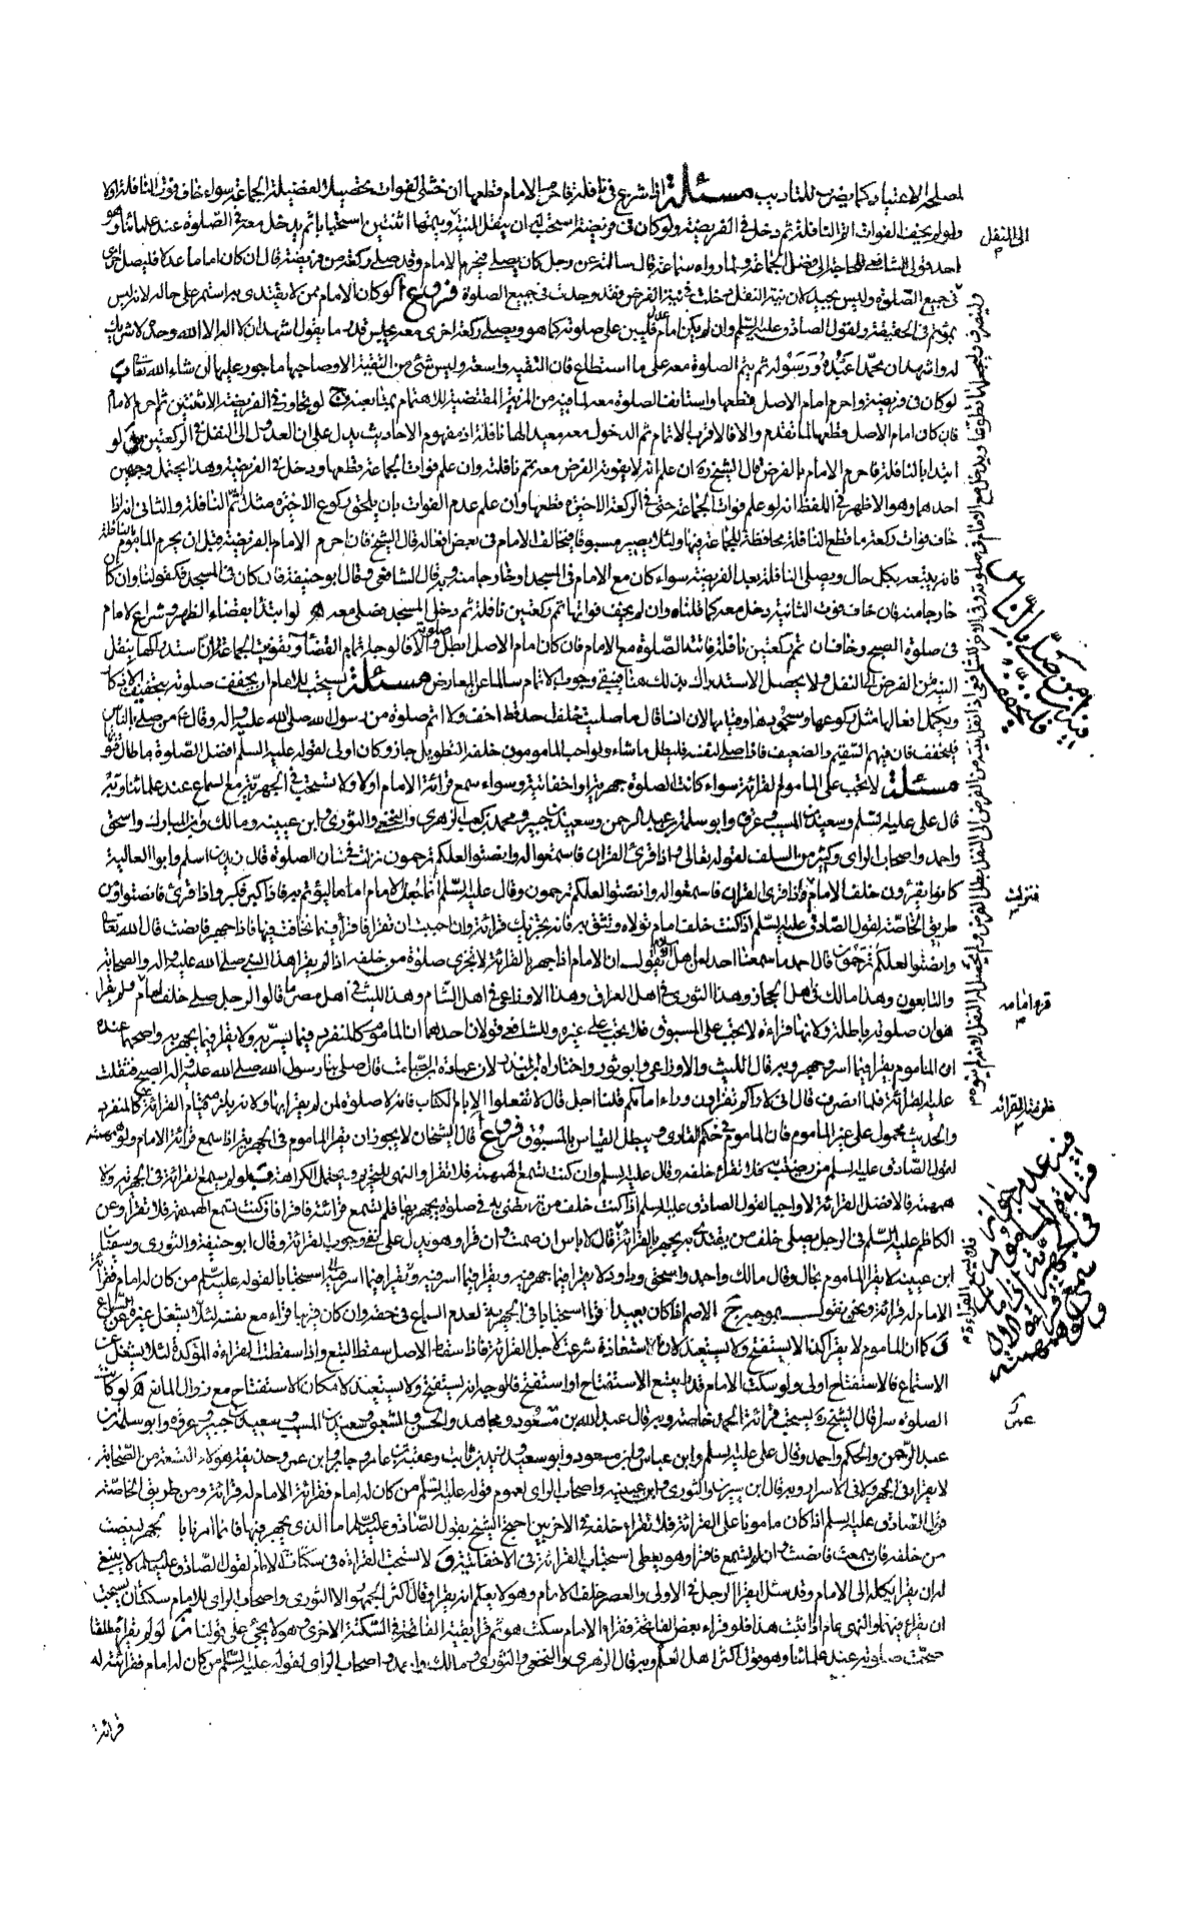 لمصلحة الاعتياد كما يضرب للتاديب مسئلة اذا شرع في نافلة فاحرم الامام قطعها ان خشى الفوات تحصيلا لفضيلة الجماعة سواء خاف فوت النافلة اولا
ولو لم يخف الفوات اتم النافلة ثم دخل في الفريضة ولو كان في فريضة استحب له ان ينقل النية ويتمها اثنتين استحبابا ثم يدخل معه في الصلوة عند علمائنا وهو
احد قولى الشافعى للحاجة الى فضل الجماعة ولما رواه سماعة قال سالته عن رجل كان يصلى فخرج الامام وقد صلى ركعة من فريضة قال ان كان اماما عدلا فليصل اخرى
في جميع الصلوة وليس بجيد لان نية النفل دخلت في نية الفرض فقد وجدت في جميع الصلوة فروع ا لو كان الامام ممن لا يقتدى به استمر على حاله لانه ليس
بمؤتم في الحقيقة ولقول الصادق عليه السلم وان لم يكن امام عدل فليبن على صلوته كما هو ويصلى ركعة اخرى معه يجلس قدر ما يقول اشهد ان لا اله الا الله وحده لا شريك
له واشهد ان محمدا عبده ورسوله ثم يتم الصلوة معه على ما استطاع فان التقية واسعة وليس شئ من التقية الا وصاحبها ماجور عليها ان شاء الله تعالى ب
لو كان في فريضة واحرم امام الاصل قطعها واستانف الصلوة معه لما فيه من المزية المقتضية للاهتمام بمتابعته ج لو تجاوز في الفريضة الاثنتين ثم احرم الامام
فان كان امام الاصل قطعها لما تقدم والا فالاقرب الاتمام ثم الدخول معه معيدا لها نافلة اذ مفهوم الاحاديث يدل على ان العدول الى النفل في الركعتين د لو
ابتدا بالنافلة فاحرم الامام بالفرض قال الشيخ ره ان علم انه لا يفوته الفرض معه تمم نافلته وان علم فوات الجماعة قطعها ودخل في الفريضة وهذا يحتمل وجهين
احدهما وهو الاظهر في اللفظ انه لو علم فوات الجماعة حتى في الركعة الاخيرة قطعها وان علم عدم الفوات بان يلحق ركوع الاخيرة مثلا تمم النافلة والثانى انه اذا
خاف فوات ركعة ما قطع النافلة محافظة للجماعة فيها ولئلا يصير مسبوقا فيخالف الامام في بعض افعاله قال الشيخ فان احرم الامام بالفريضة قبل ان يحرم الماموم بالنافلة
فانه يتبعه بكل حال ويصلى النافلة بعد الفريضة سواء كان مع الامام في المسجد او خارجا منه وبه قال الشافعى وقال ابو حنيفة ان كان في المسجد فكقولنا وان كان
خارجا منه فان خاف فوت الثانية دخل معه كما قلناه وان لم يخف فواتها تمم ركعتين نافلة ثم دخل المسجد فصلى معه ه لو ابتدا بقضاء الظهر وشرع الامام
في صلوة الصبح وخاف ان تمم ركعتين نافلة فاتته الصلوة مع الامام فان كان امام الاصل ابطل صلوته والا فالوجه اتمام القضاء وتفويت الجماعة لان استدراكها بنقل
النية من الفرض الى النفل ولا يحصل الاستدراك بذلك هنا فيبقى وجوب الاتمام سالما عن المعارض مسئلة يستحب للامام ان يخفف صلوته بتخفيف الاذكار
ويكمل افعالها مثل ركوعها وسجودها وقيامها لان انسا قال ما صليت خلف احد قط اخف ولا اتم صلوة من رسول الله صلى الله عليه واله وقال ع من صلى بالناس
فليخفف فان فيهم السقيم والضعيف فاذا صلى لنفسه فليطل ما شاء ولو احب المامومون خلفه التطويل جاز وكان اولى لقوله عليه السلم افضل الصلوة ما طال قنوتها
مسئلة لا تجب على الماموم القرائة سواء كانت الصلوة جهرية او اخفاتية وسواء سمع قرائة الامام اولا ولا تستحب في الجهرية مع السماع عند علمائنا وبه
قال على عليه السلم وسعيد بن المسيب وعروة وابو سلمة بن عبد الرحمن وسعيد بن جبير ومحمد بن كعب والزهرى والنخعى والثورى وابن عيينة ومالك وابن المبارك واسحق
واحمد واصحاب الراى وكثير من السلف لقوله تعالى واذا قرئ القران فاستمعوا له وانصتوا لعلكم ترحمون نزلت في شان الصلوة قال زيد بن اسلم وابو العالية
كانوا يقرؤن خلف الامام فاذا قرى القران فاستمعوا له وانصتوا لعلكم ترحمون وقال عليه السلم انما جعل الامام اماما ليؤتم به فاذا كبر فكبروا واذا قرئ فانصتوا ومن
طريق الخاصة لقول الصادق عليه السلم اذا كنت خلف امام تولاه وتثق به فانه يجزيك قرائته وان احببت ان تقرا فاقرا فيما يخافت فيها فاذا جهر فانصت قال الله تعالى
وانصتوا لعلكم ترحمون قال احمد ما سمعنا احدا من اهل الاسلام يقول ان الامام اذا جهر بالقرائة لا تجزى صلوة من خلفه اذا لم يقرا هذا النبى صلى الله عليه واله والصحابة
والتابعون وهذا مالك في اهل الحجاز وهذا الثورى في اهل العراق وهذا الاوزاعى في اهل الشام وهذا الليث في اهل مصر ما قالوا لرجل صلى خلف امام فلم يقرا
هو ان صلوته باطلة ولانها قراءة لا تجب على المسبوق فلا تجب على غيره وللشافعى قولان احدهما ان الماموم كالمنفرد فيما يسر به ولا يقرا فيما يجهر به واصحهما عنده
ان الماموم يقرا فيما اسر وجهر وبه قال الليث والاوزاعى وابو ثور واختاره ابن المنذر لان عبادة بن الصامت قال صلى بنا رسول الله صلى الله عليه واله الصبح فثقلت
عليه القرائة فلما انصرف قال انى لاراكم تقراون وراء امامكم قلنا اجل قال لا تفعلوا الا بام الكتاب فانه لا صلوة لمن لم يقرا بها ولانه يلزمه قيام القرائة كالمنفرد
والحديث محمول على غير الماموم فان الماموم في حكم القارى ويبطل القياس بالمسبوق فروع ا قال الشيخان لا يجوز ان يقرا الماموم في الجهرية اذا سمع قرائة الامام ولو همهمة
لقول الصادق عليه السلم من رضيت به فلا تقراء خلفه وقال عليه السلم وان كنت تسمع الهمهمة فلا تقرا والنهى للتحريم ويحتمل الكراهة ب لو لم يسمع القرائة في الجهرية ولا
همهمة فالافضل القرائة لا واجبا لقول الصادق عليه السلم اذا كنت خلف من ترتضى به في صلوة يجهر بها فلم تسمع قرائته فاقرا فان كنت تسمع الهمهمة فلا تقرا وعن
الكاظم عليه السلم في الرجل يصلى خلف من يقتدى به يجهر بالقرائة قال لا باس ان صمت وان قرا وهو يدل على نفى وجوب القرائة وقال ابو حنيفة والثورى وسفيان
ابن عيينة لا يقرا الماموم بحال وقال مالك واحمد واسحق وداود لا يقرا فيما جهر فيه ويقرا فيما اسر فيه استحبابا لقوله عليه السلم من كان له امام فقرائة
الامام له قرائة ونحن نقول بموجبه ج الاصم اذا كان بعيدا قرا استحبابا في الجهرية لعدم السماع في حقه وان كان قريبا قراء مع نفسه لئلا يشغل غيره عن السماع
د كما ان الماموم لا يقرا كذا لا يستفتح ولا يستعيذ لان الاستعاذة شرعت لاجل القرائة فاذا سقط الاصل سقط التبع واذا سقطت القراءة المؤكدة لئلا يشتغل عن
الاستماع فالاستفتاح اولى ولو سكت الامام قدرا يتسع الاستفتاح او استفتح فالوجه انه يستفتح ولا يستعيذ لامكان الاستفتاح مع زوال المانع ه لو كانت
الصلوة سرا قال الشيخ ره يستحب قرائة الحمد خاصة وبه قال عبد الله بن مسعود ومجاهد والحسن والشعبى وسعيد بن المسيب وسعيد بن جبير وعروة وابو سلمة بن
عبد الرحمن والحكم واحمد وقال على عليه السلم وابن عباس وابن مسعود وابو سعيد وزيد بن ثابت وعقبة بن عامر وجابر وابن عمر وحذيفة هؤلاء التسعة من الصحابة
لا يقراء في الجهر ولا في الاسرار وبه قال ابن سيرين والثورى وابن عيينة واصحاب الراى لعموم قوله عليه السلم من كان له امام فقرائة الامام له قرائة ومن طريق الخاصة
قول الصادق عليه السلم اذا كان مامونا على القرائة فلا تقراء خلفه في الاخريين احتج الشيخ بقول الصادق عليه السلم اما الذى يجهر فيها فانما امرنا بالجهر لينصت
من خلفه فان سمعت فانصت وان لم تسمع فاقرا وهو يعطى استحباب القرائة في الاخفاتية و لا تستحب القراءة في سكتات الامام لقول الصادق عليه السلم لا ينبغى
له ان يقرا يكله الى الامام وقد سئل ايقرا الرجل في الاولى والعصر خلف الامام وهو لا يعلم انه يقرا وقال اكثر الجمهور الا الثورى واصحاب الراى للامام سكتتان يستحب
ان يقراء فيهما والنهى عام اذا ثبت هذا فلو قراء بعض الفاتحة فقراء الامام سكت هو ثم قرا بقية الفاتحة في السكتة الاخرى وهو لا يجئ على قولنا ز لو لم يقرا مطلقا
صحت صلوته عند علمائنا وهو قول اكثر اهل العلم وبه قال الزهرى والنخعى والثورى ومالك واحمد واصحاب الراى لقوله عليه السلم من كان له امام فقرائته له
قرائة
الى النفل
فنزلت
قرء امامه